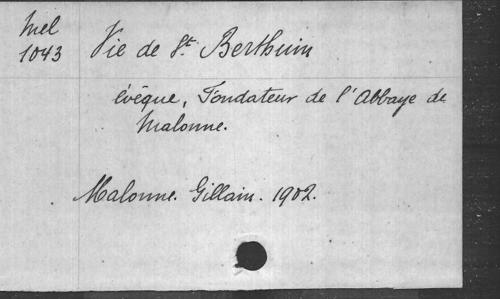 Mel
1043
Vie de St. Berthuin
évêque, Fondateur de l'Abbaye de
Malonne.
Malonne. Gillain. 1902.